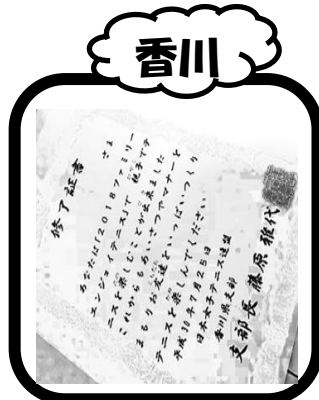 香川
修了証書
さま
あなたは「2018ファミリー
エンジョイテニス」に
ニスを楽しむことが出来ました
これからも あいさつやマナーと
まもりお友達をいっぱいつくり
テニスを楽しんでください
平成30年7月25日
日本女子テニス連盟
香川県支部
支部長 藤原雅代